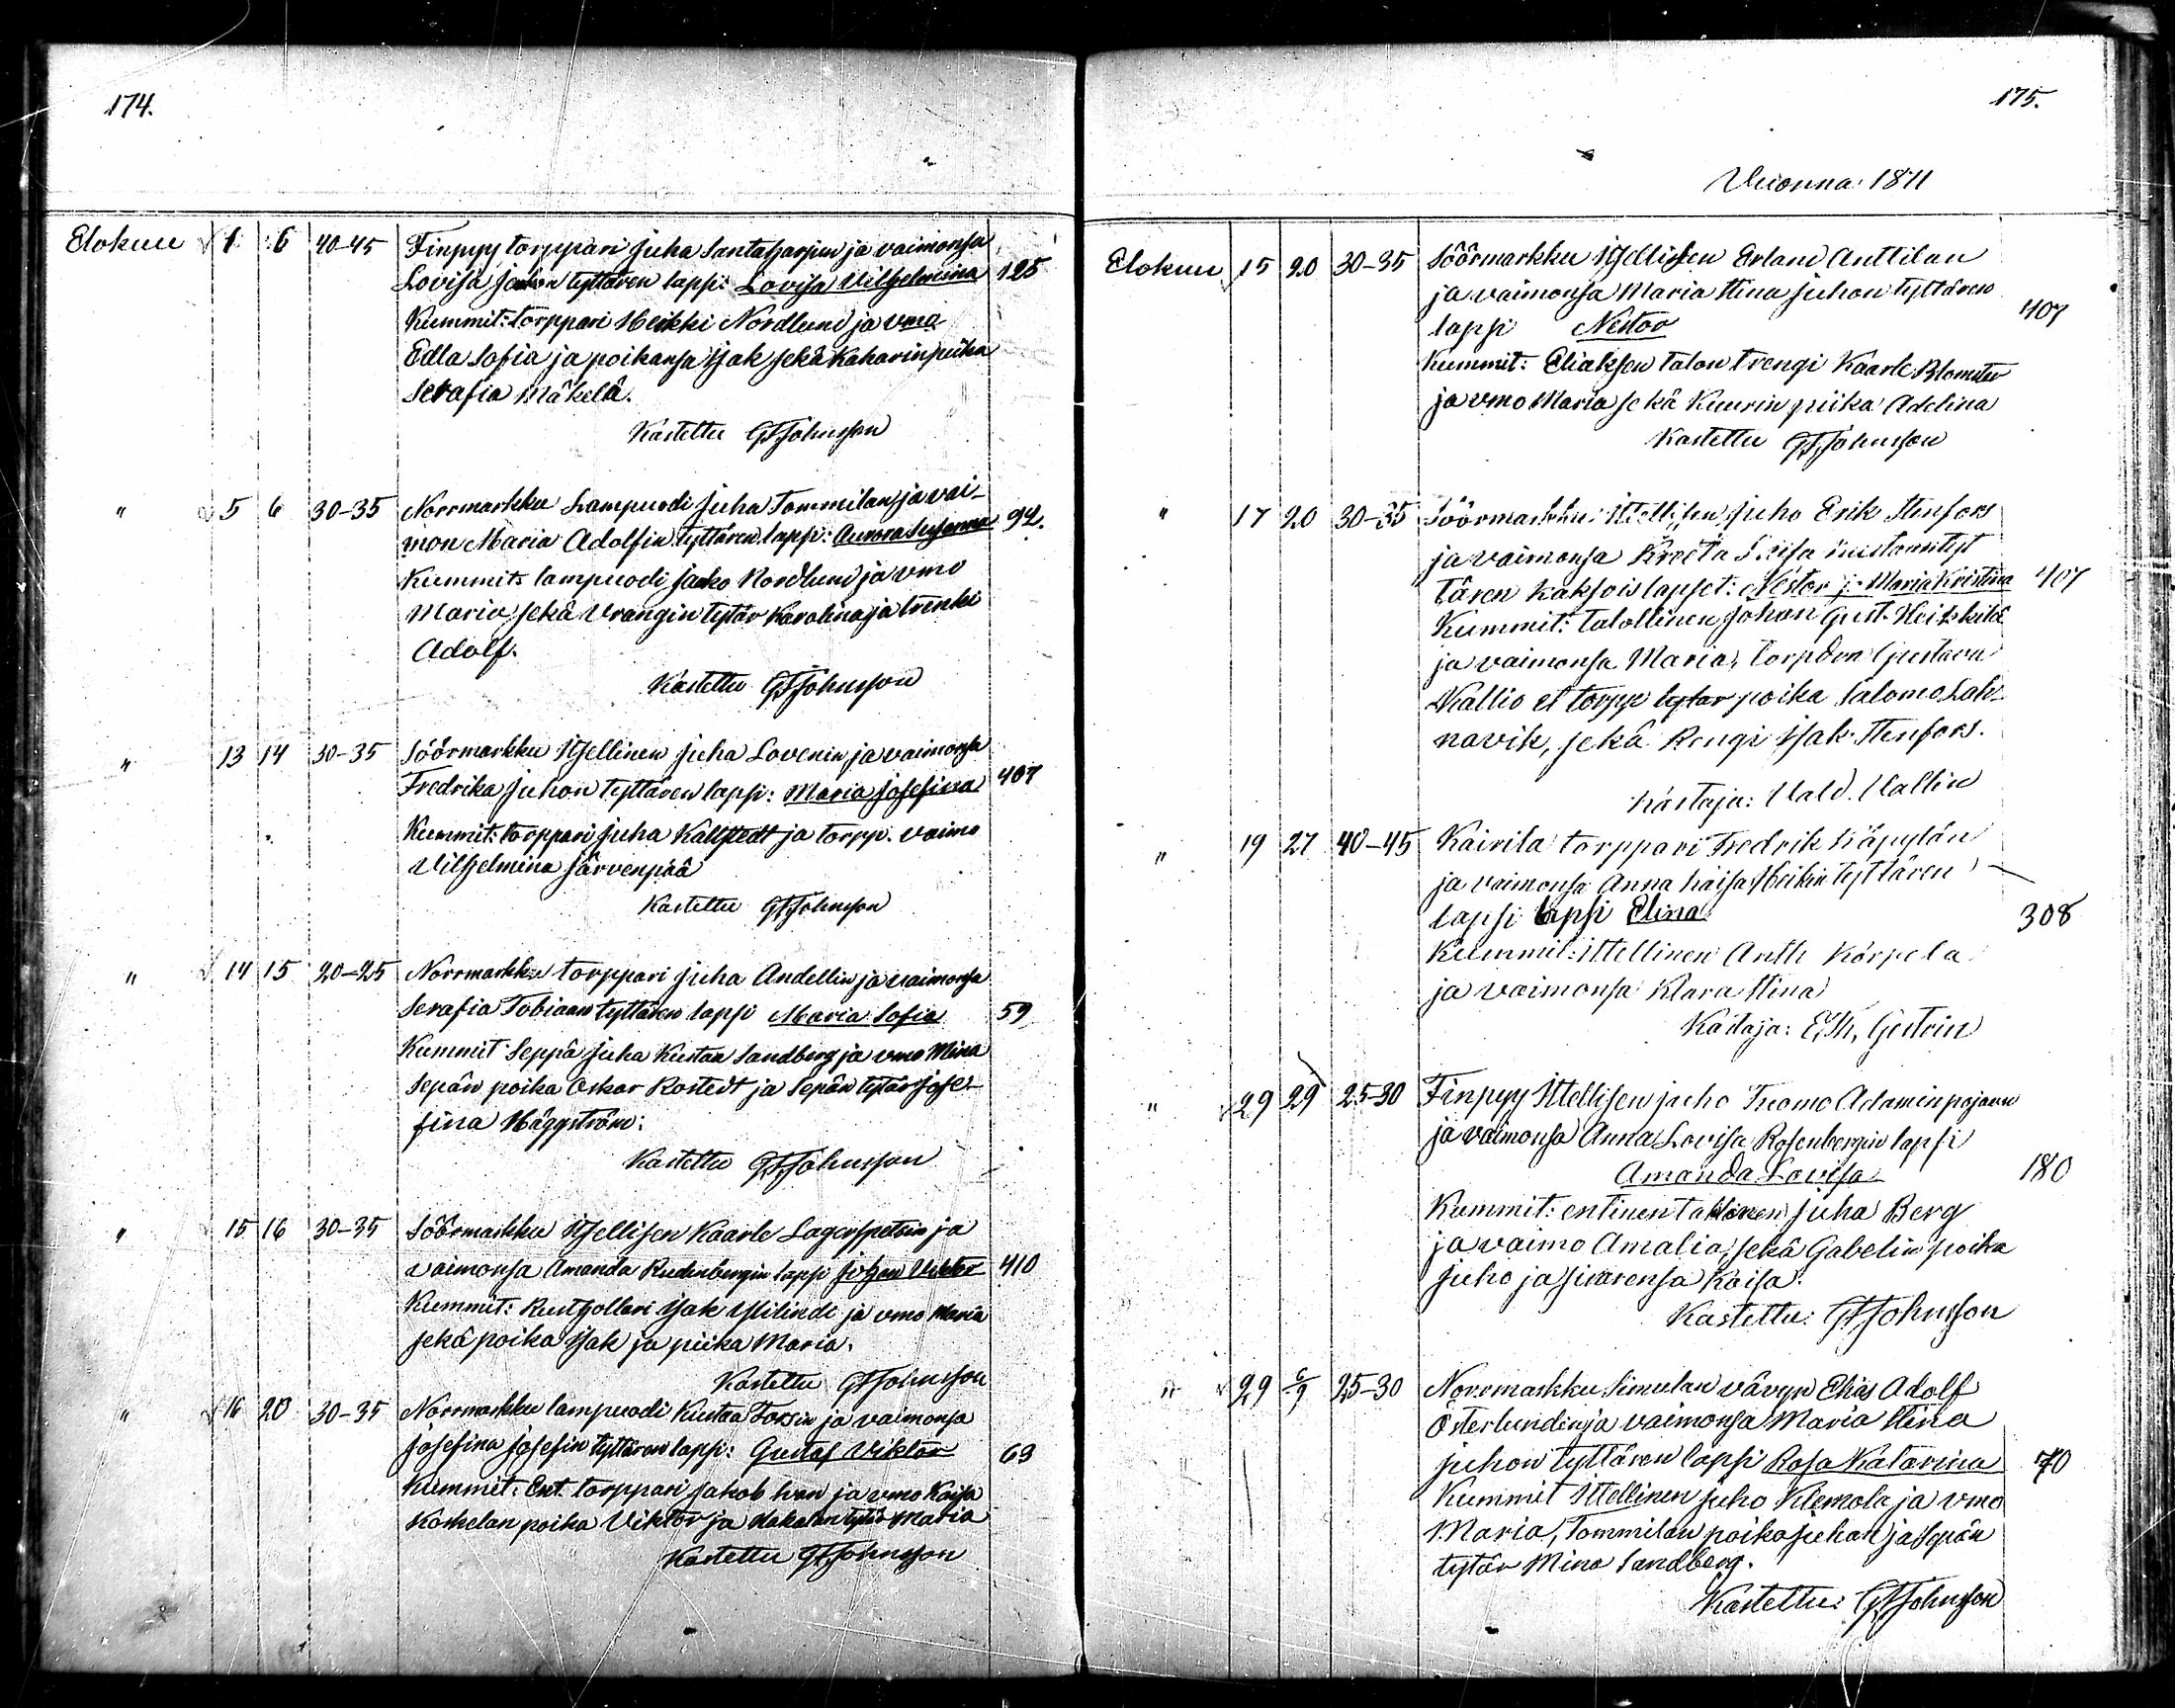 174.
Elokuu 1 6 40-45 Finpyy torppari Juha Santaharjun ja vaimonsa
Lovisa Juhon tyttären lapsi: Lovisa Vilhelmina 125
Kummit: torppari Heikki Nordlund ja vmo
Edla Sofia ja poikansa Isak sekä Kaharin piika
Serafia Mäkelä.
Kastettu GFJohnsson
" 5 6 30-35 Norrmarkku Lampuodi Juha Tommilan ja vai-
mon Maria Adolfin tyttären lapsi: Aurora Susanna 92.
Kummit: lampuodi Jaako Nordlund ja vmo
Maria, sekä Vrangin tytär Karolina ja trenki
Adolf.
Kastettu GFJohnsson
" 13 14 30-35 Söörmarkku Itsellinen Juha Lovenin ja vaimonsa
Fredrika Juhon tyttären lapsi: Maria Josefina 407
Kummit: torppari Juha Kallstedt ja torpp. vaimo
Vilhelmina Järvenpää
Kastettu GFJohnsson
" 14 15 20-25 Norrmarkku torppari Juha Andellin ja vaimonsa
Serafia Tobiaan tyttären lapsi Maria Sofia 59
Kummit Seppä Juha Kustaa Sandberg ja vmo Mina
Sepän poika Oskar Rostedt ja Sepän tytär Jose-
fina Häggström:
Kastettu GFJohnsson
" 15 16 30-35 Söörmarkku Itsellisen Kaarle Lagerspetsin ja
vaimonsa Amanda Rudenbergin lapsi Johan Viktor 410
Kummit: Rusthollari Isak Ylilindi ja vmo Maria
sekä poika Isak ja piika Maria.
Kastettu GFJohnsson
" 16 20 30-35 Norrmarkku lampuodi Kustaa Forsin ja vaimonsa
Josefina Josefin tyttären lapsi: Gustaf Viktor 69
Kummit: Ent. torppari Jakob ja vmo Kaisa
Koskelan poika Viktor ja tytär Maria
Kastettu GFJohnsson
175.
Vuonna 1871
Elokuu 15 20 30-35 Söörmarkku Itsellisen Erland Anttilan
ja vaimonsa Maria Stina Juhon tyttären
lapsi Nestor 407
Kummit: Eliaksen talon trengi Kaarle Blomster
ja vmo Maria sekä Kuurin piika Adelina
Kastettu GFJohnsson
" 17 20 30-35 Söörmarkku: Itsellisen Juho Erik Stenfors
ja vaimonsa Kreeta Kaisa Kustaantyt
tären kaksoislapset: Nestor j: Maria Kristina 407
Kummit: talollinen Johan Gust. Heikkilä
ja vaimonsa Maria, torpdon Gustava
Kallio et torpp poika Salomo Lah-
navik, sekä Rengi Isak Stenfors.
Kastaja: Vald. Vallin
" 19 27 40-45 Kairila torppari Fredrik Käpylän
ja vaimonsa Anna Kaisa Heikin tyttären
lapsi lapsi Elina 308
Kummit: Ittellinen Antti Körpela
ja vaimonsa Klara Stina
Kastaja: E,Th, Gestrin
" 29 29 25-30 Finpyy Ittellisen juho Tuomo Adaminpojan
ja vaimonsa Anna Lovisa Rosenbergin lapsi
Amanda Lovisa 180
Kummit: entinen talonen Juha Berg
ja vaimo Amalia, sekä Gabelin poika
Juho ja sisarensa Kaisa.
Kastettu: GFJohnsson
" 29 6/9 25-30 Norrmarkku Simulan vävyn Elias Adolf
Österlundin ja vaimonsa Maria Stina
juhon tyttären lapsi Rosa Katarina 70
Kummit Ittellinen juho Klemola ja vmo
Maria, Tommilan poika juhan ja Sepän
tytär Mina Sandberg.
Kastettu: GFJohnsson